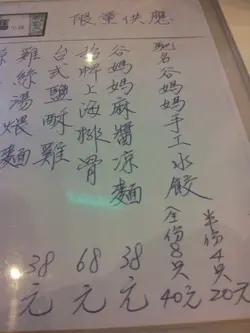 限量供應
馳名谷媽媽手工水餃 全份8只 40元
半份4只 20元
谷媽媽麻醬凉麵 38元
招牌上海排骨 68元
台式鹽酥雞 38元
雞絲湯煨麵